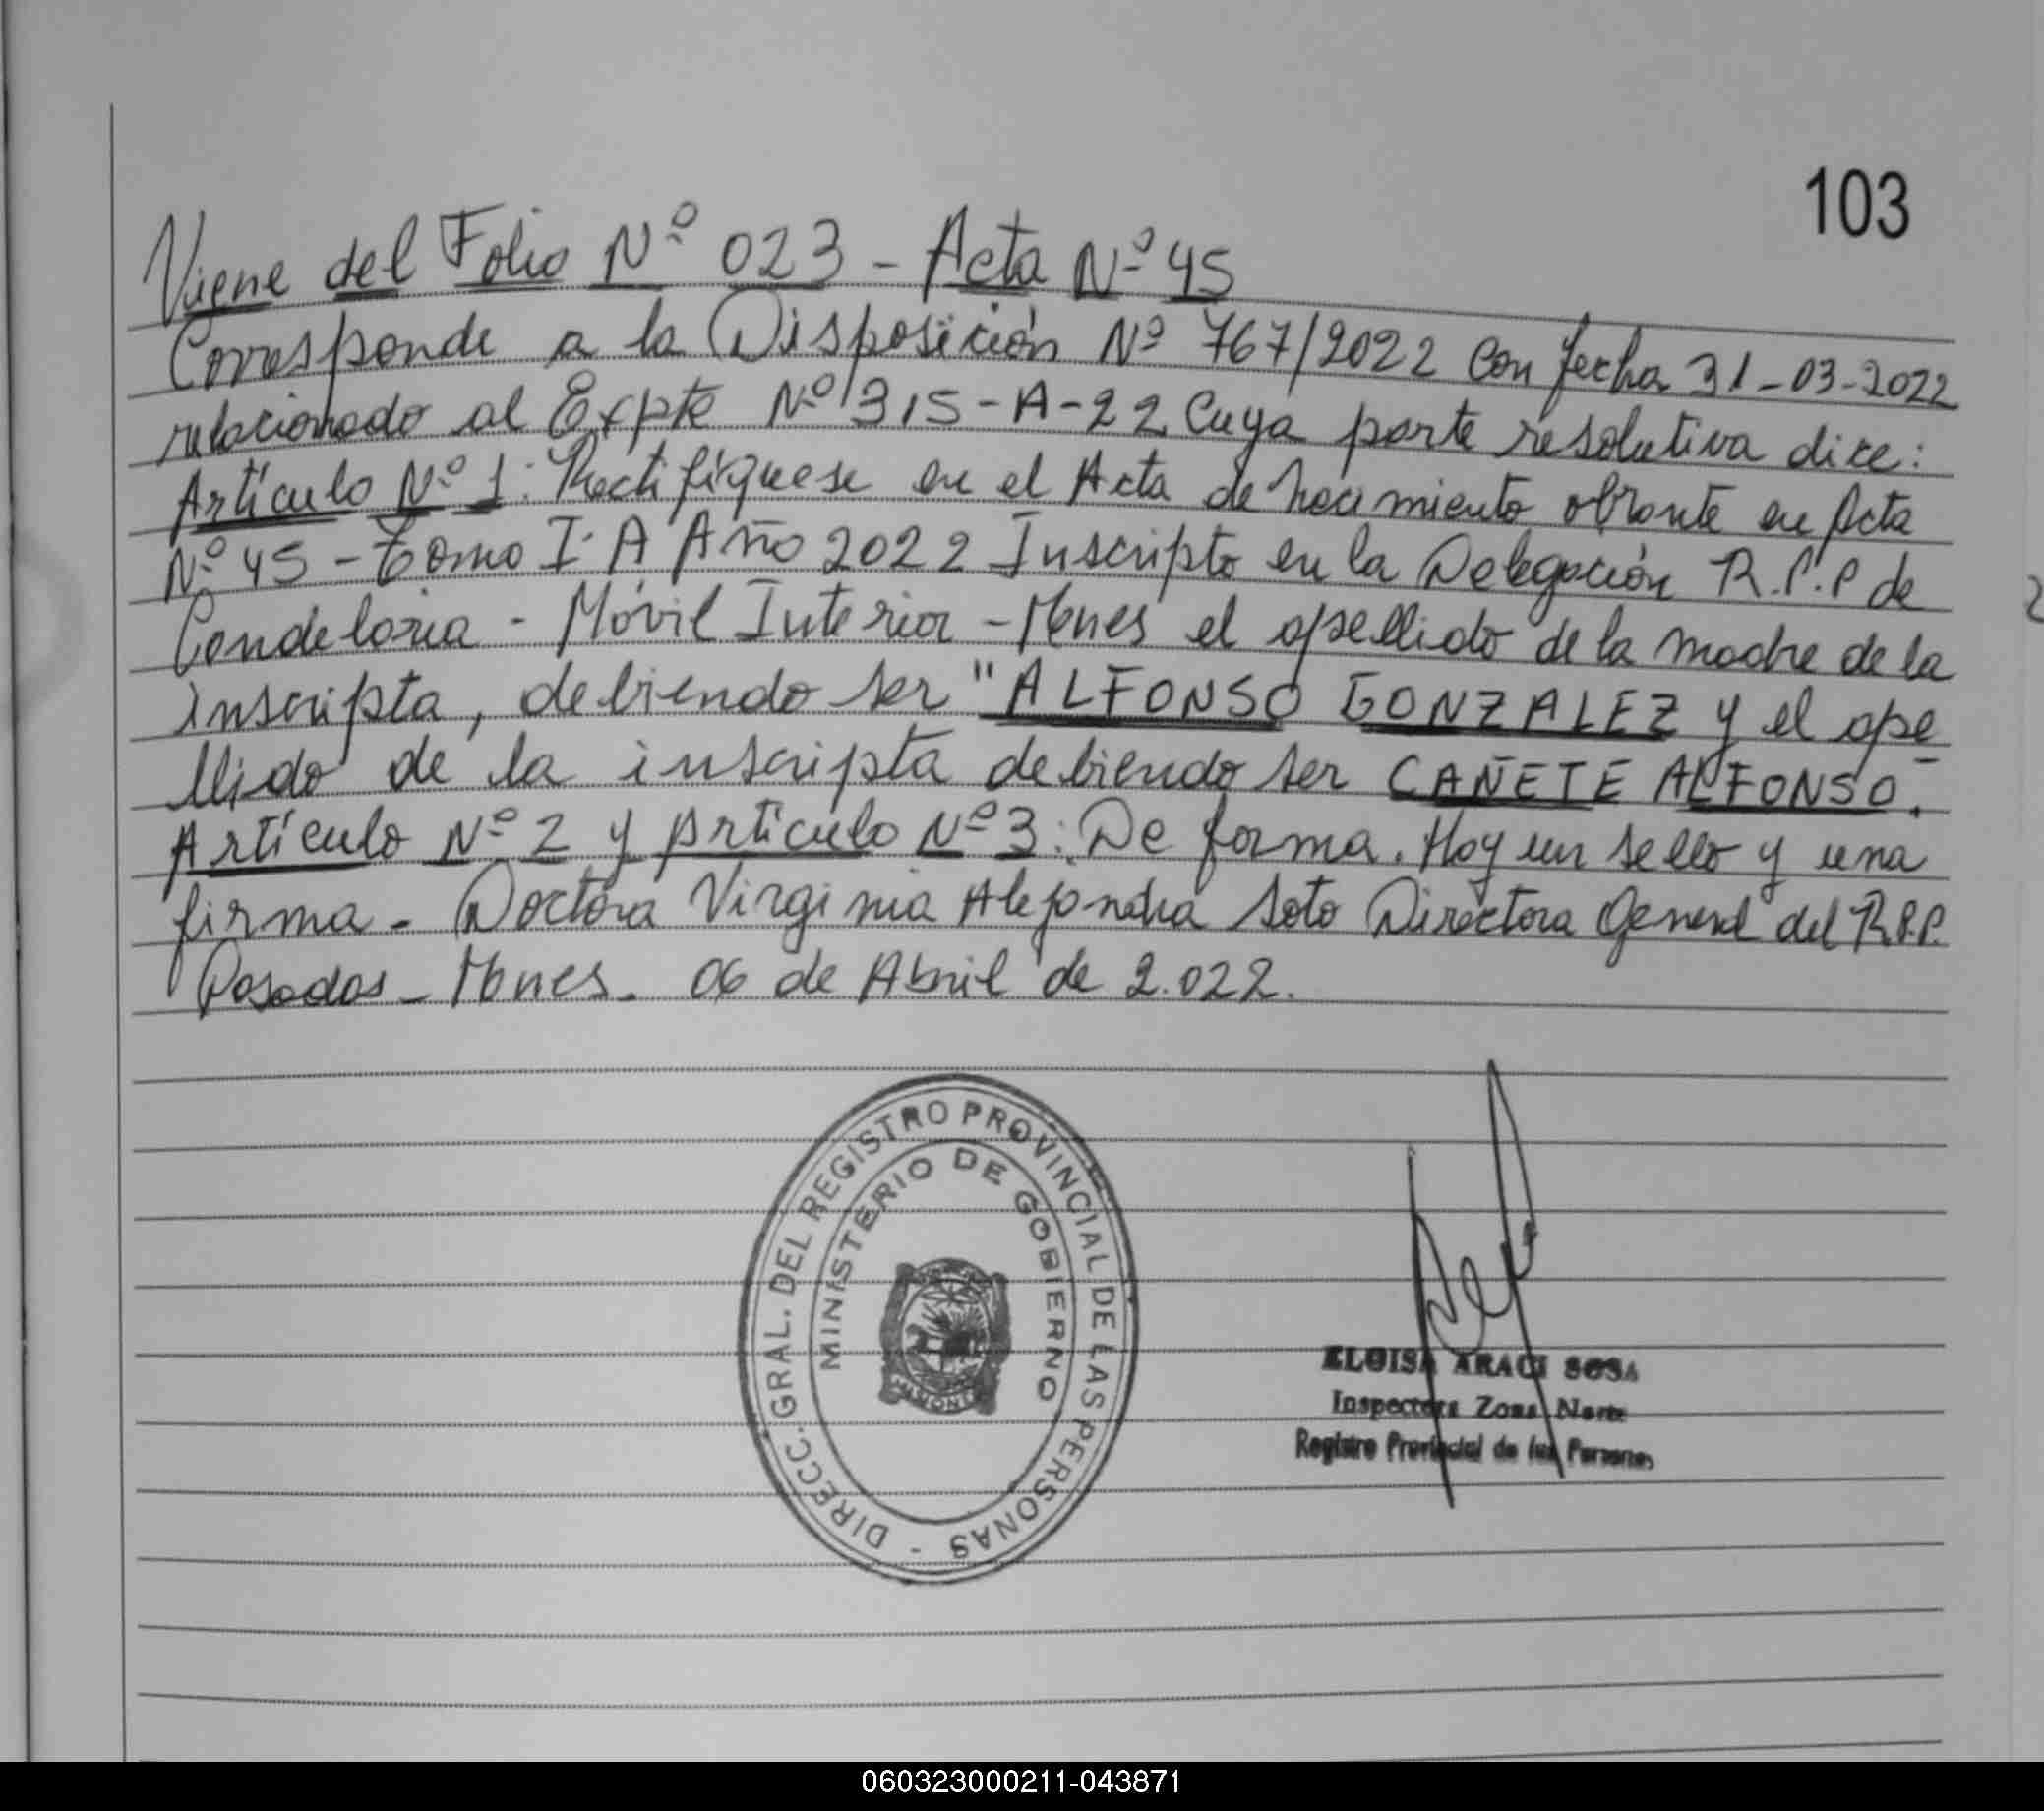 103
Viene del Folio Nº 023 - Acta Nº 45
Corresponde a la Disposición Nº 767/2022 Con fecha 31-03-2022
relacionado al Expte Nº 315-A-22 Cuya parte resolutiva dice:
Artículo Nº 1: Rectifíquese en el Acta de nacimiento obrante en Acta
Nº 45 - Tomo I A Año 2022 Inscripto en la Delegación R.P.P de
Candelaria - Móvil Interior - Mnes el apellido de la madre de la
inscripta, debiendo ser "ALFONSO GONZALEZ y el ape
llido de la inscripta debiendo ser CAÑETE ALFONSO.
Artículo Nº 2 y Artículo Nº 3: De forma. Hay un sello y una
firma - Doctora Virginia Alejandra Soto Directora General del R.P.P.
Posadas - Mnes. 06 de Abril de 2.022.
DIRECC. GRAL. DEL REGISTRO PROVINCIAL DE LAS PERSONAS -
MINISTERIO DE GOBIERNO
MISIONES
ELOISA ARACI SOSA
Inspectora Zona Norte
Registro Provincial de las Personas
060323000211-043871